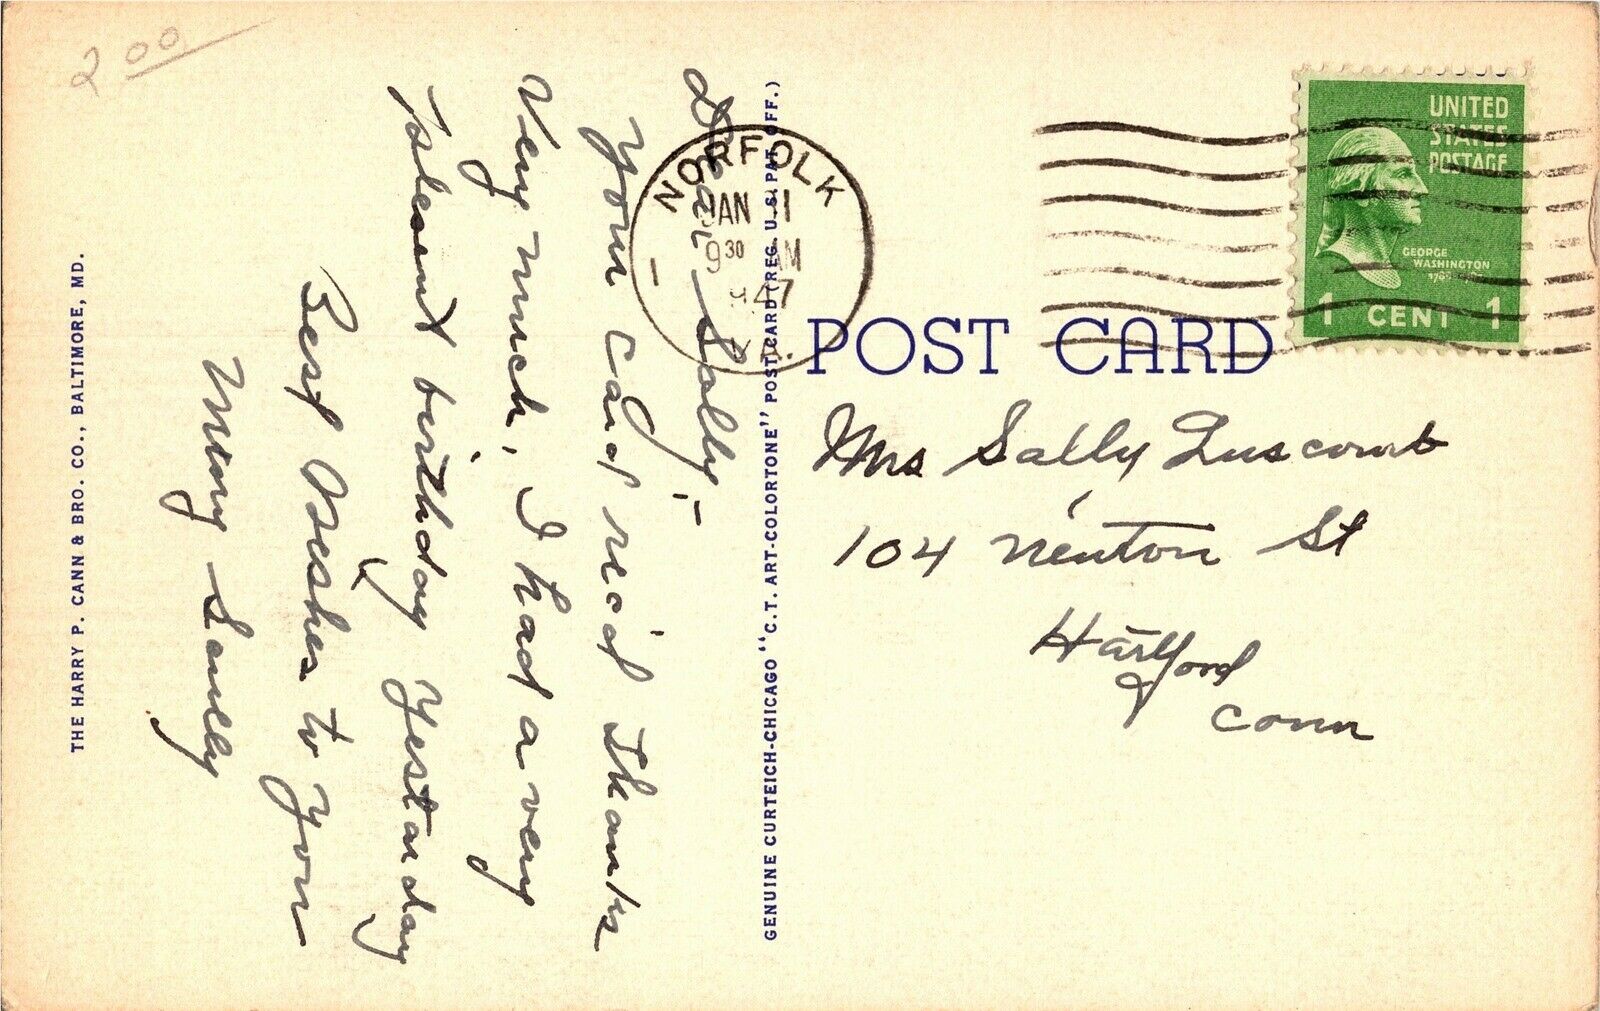 2 00
Dear Sally:-
Your card rec'd Thanks
Very much, I had a very
plesent birthday yestarday
Best Wishes to Your
Family
THE HARRY P. CANN & BRO. CO., BALTIMORE, MD.
GENUINE CURTEICH-CHICAGO "C.T. ART-COLORTONE" POST CARD (REG. U.S. PAT. OFF.)
NORFOLK
JAN 1
9 30 AM
47
UNITED
STATES
POSTAGE
GEORGE
WASHINGTON
1 CENT 1
POST CARD
Mrs Sally Luscomb
104 Newton St
Hartford
Conn